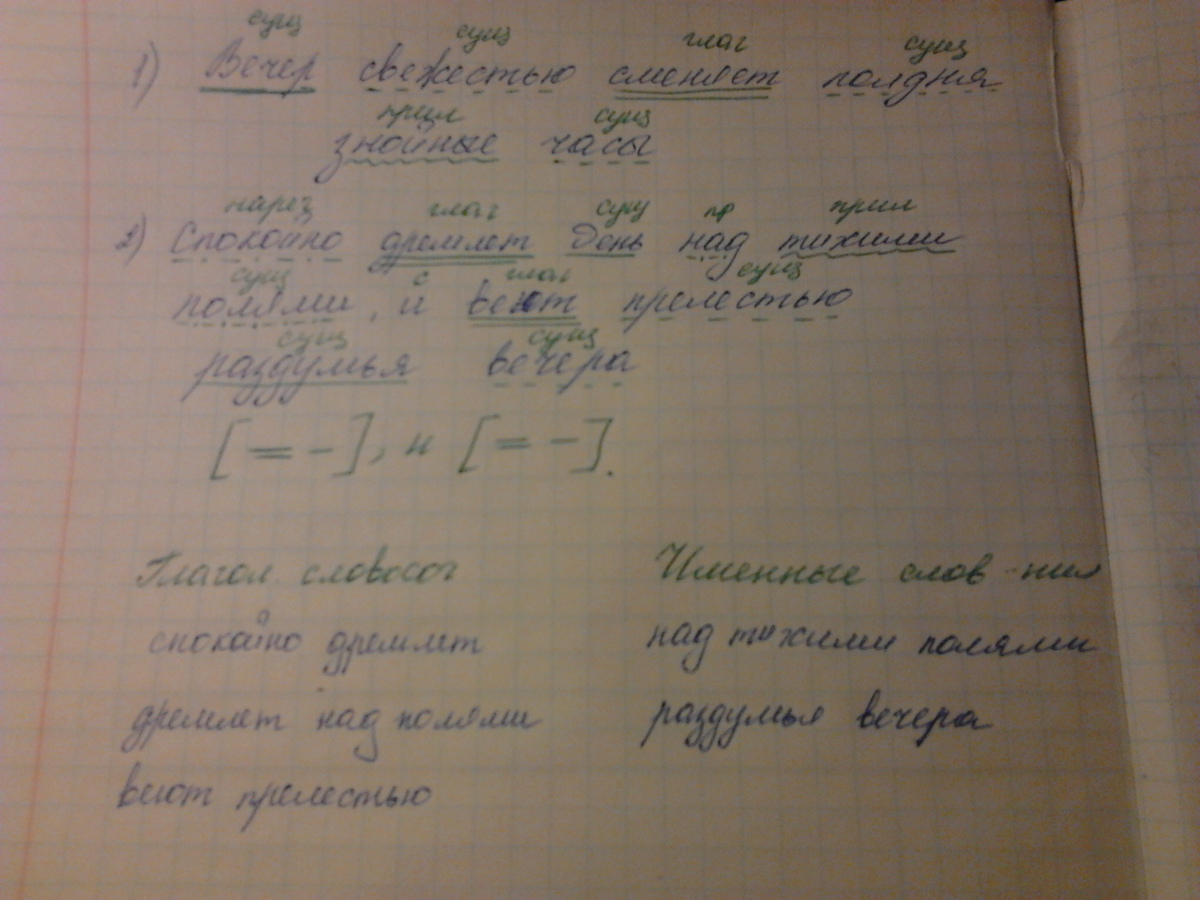 сущ сущ глаг сущ
1) Вечер свежестью сменяет полдня
прил сущ
знойные часы
нареч глаг сущ пр прил
2) Спокойно дремлет день над тихими
сущ с глаг сущ
полями, и веют прелестью
сущ сущ
раздумья вечера
[= -], и [= -].
Глагол. словосоч Именные слов-ния
спокойно дремлет над тихими полями
дремлет над полями раздумья вечера
веют прелестью